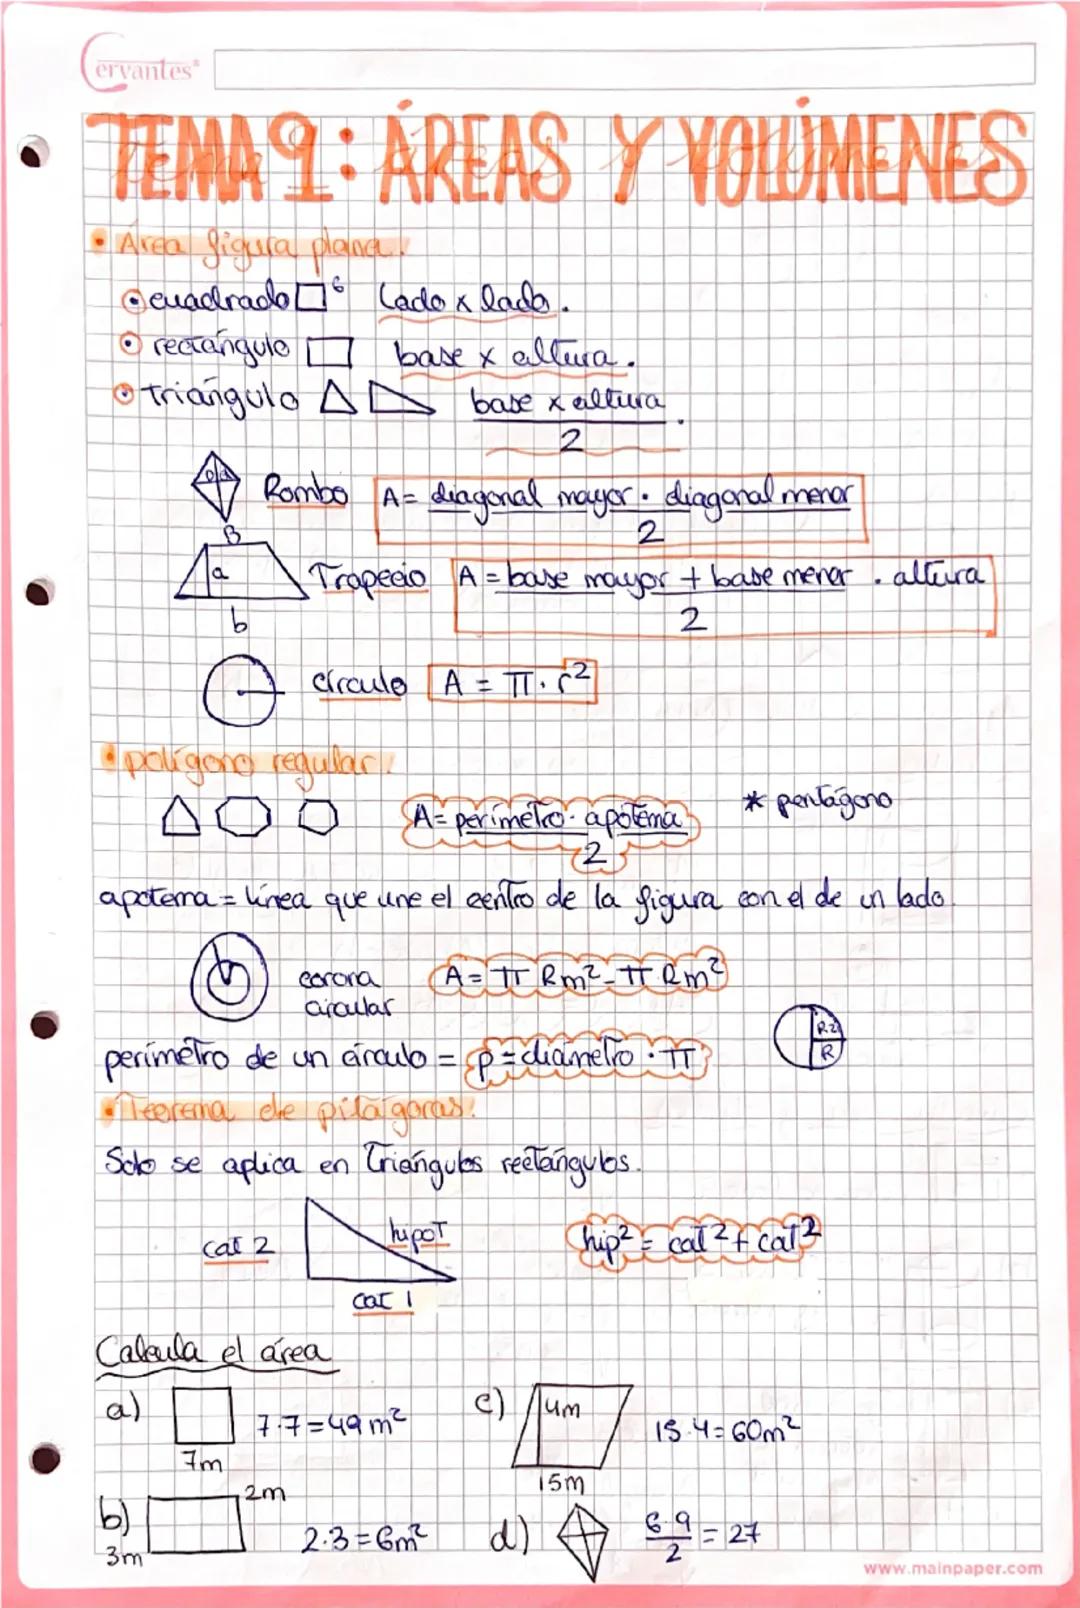 Cervantes®
TEMA 9: ÁREAS Y VOLÚMENES
• Área figura plana.
cuadrado 6 lado x lado.
rectángulo base x altura.
triángulo base x altura
2
Rombo A= diagonal mayor · diagonal menor
2
B
a Trapecio A = base mayor + base menor . altura
b 2
círculo A = π · r²
• polígono regular.
A= perímetro · apotema * pentágono
2
apotema = línea que une el centro de la figura con el de un lado.
corona A= π Rm² - π Rm²
circular
R2
R
perímetro de un círculo = p = diámetro · π
• Teorema de pitágoras.
Solo se aplica en triángulos rectángulos.
cat 2 hipot hip² = cat² + cat²
cat 1
Calcula el área
a) 7·7=49 m²
7m
c) 4m 15·4=60m²
15m
b) 2m
3m 2·3=6m²
d) 6·9 = 27
2
www.mainpaper.com